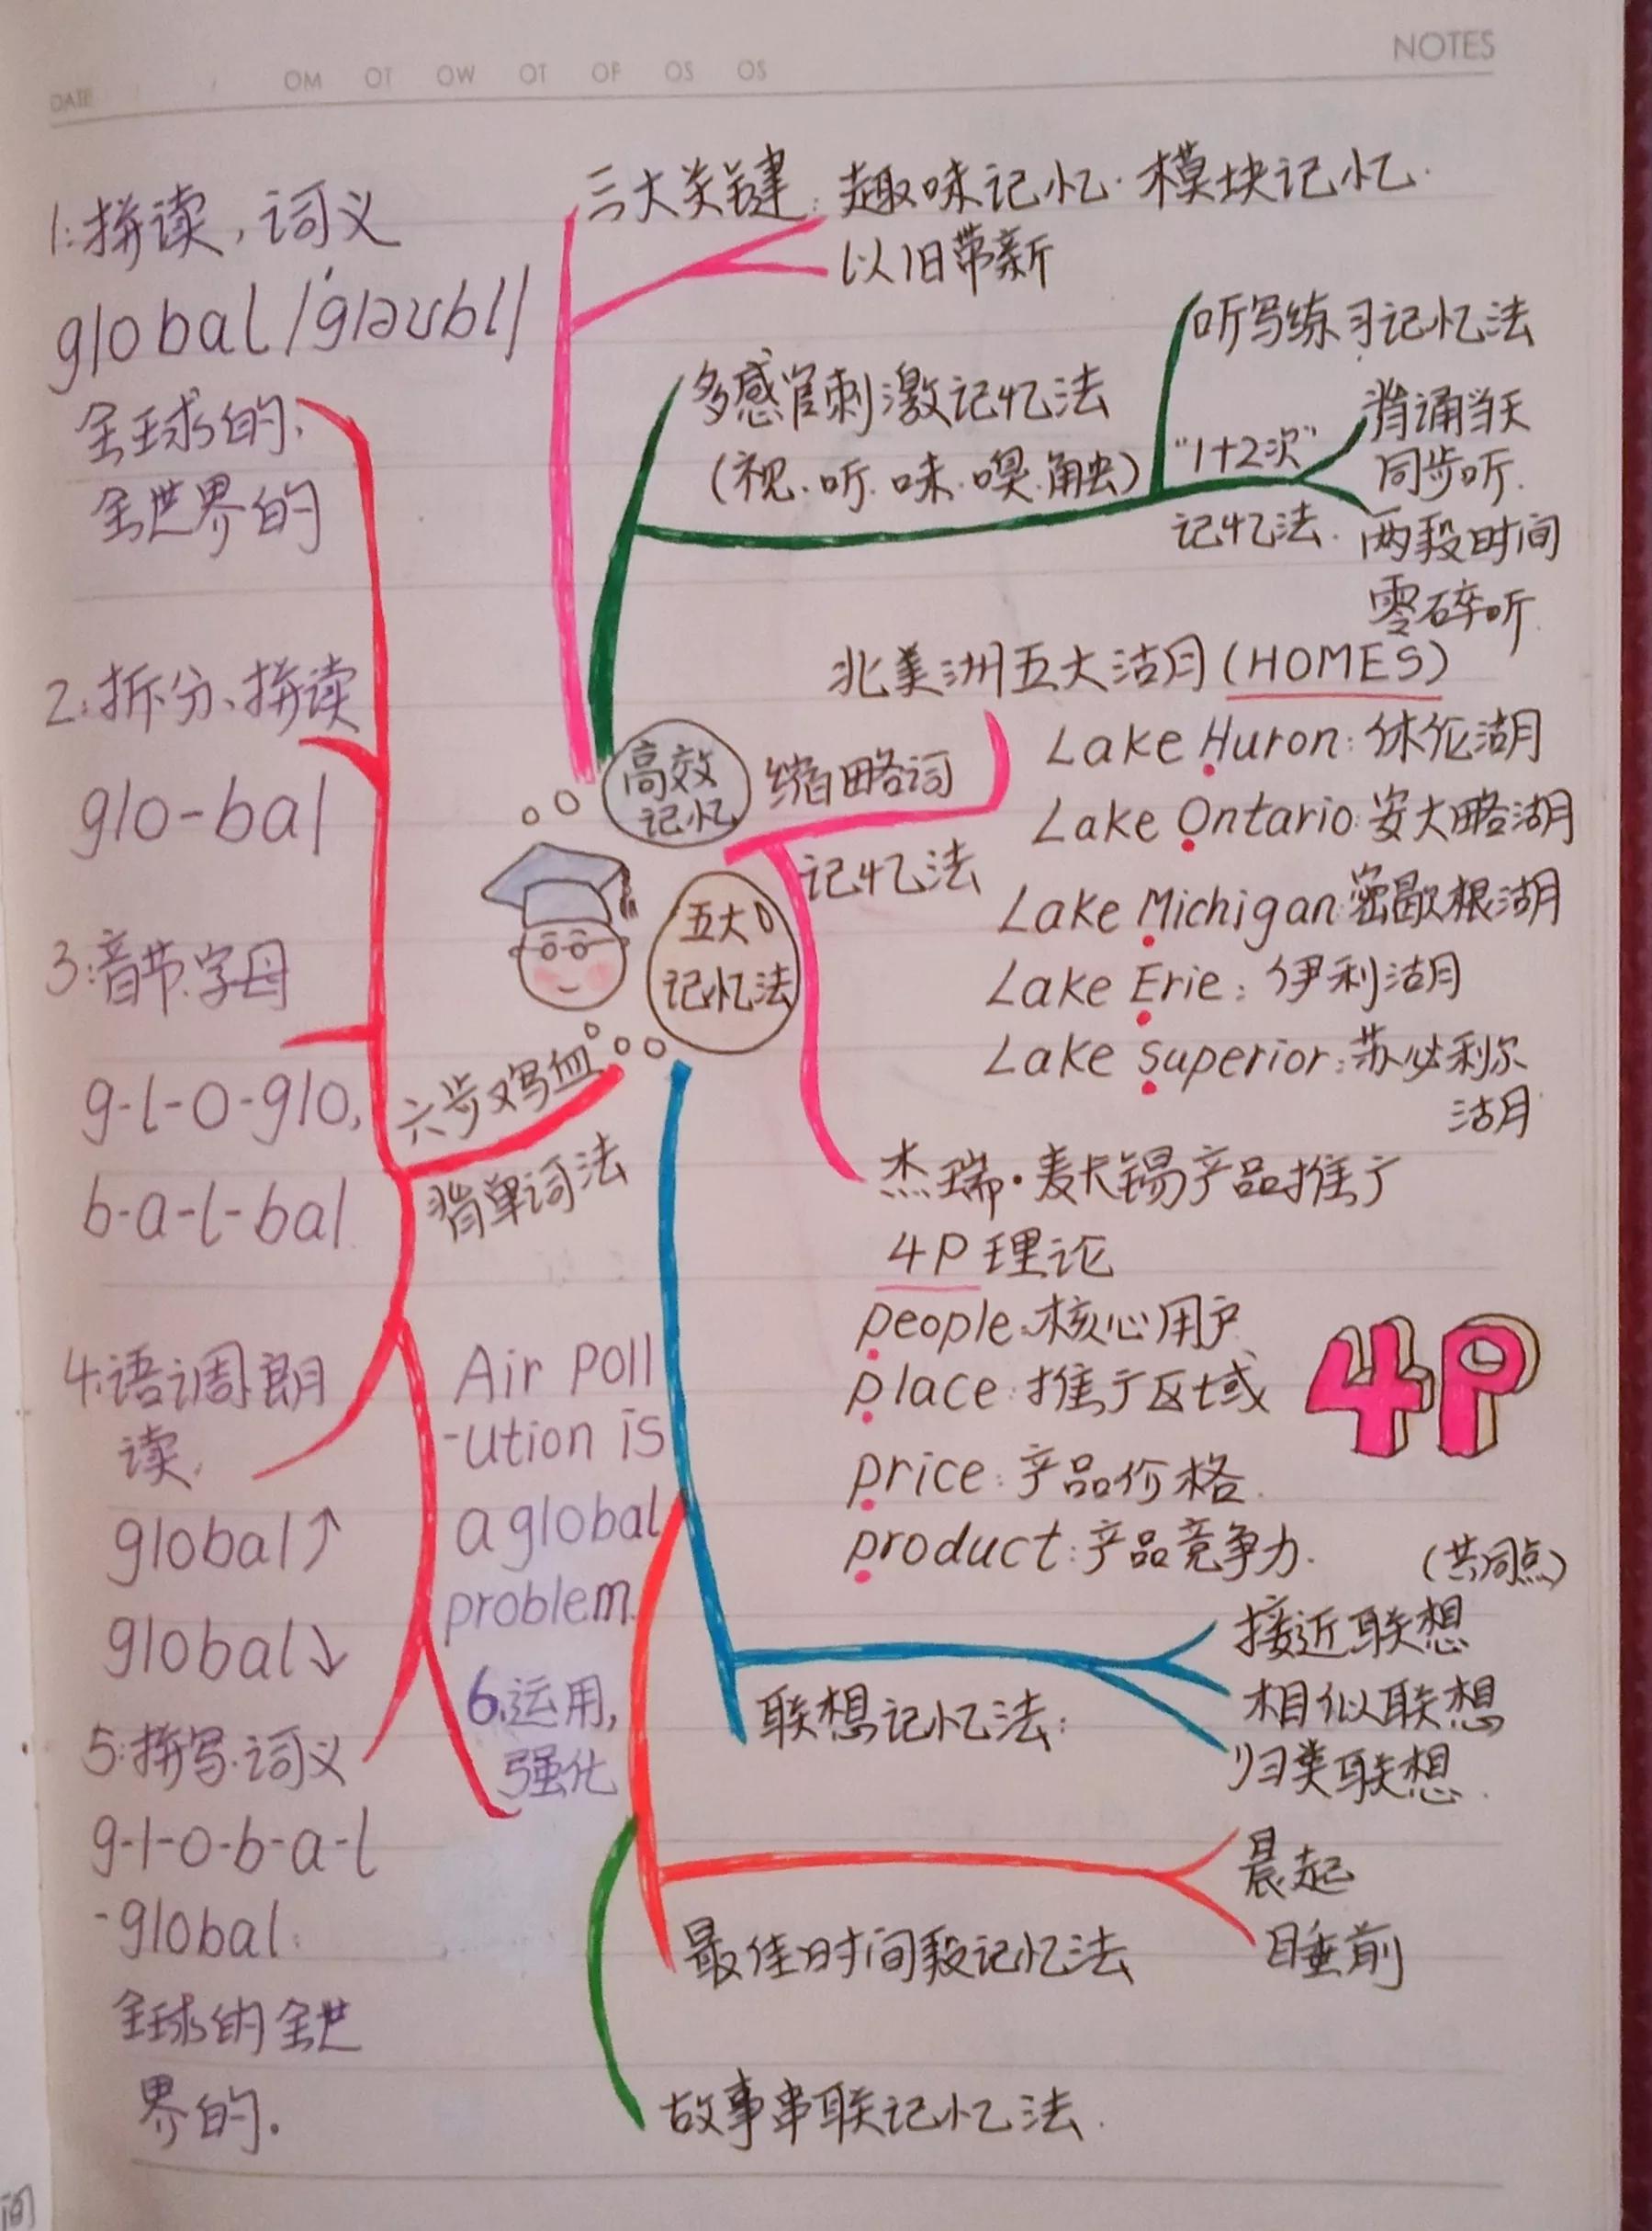 NOTES
DATE OM OT OW OT OF OS OS
三大关键:趣味记忆·模块记忆·
以旧带新
多感官刺激记忆法
(视.听.味.嗅.触)
听写练习记忆法
"1+2次"
记忆法.
背诵当天
同步听.
两段时间
零碎听.
高效
记忆
五大
记忆法
缩略词
记忆法
北美洲五大湖(HOMES)
Lake Huron:休伦湖
Lake Ontario:安大略湖
Lake Michigan:密歇根湖
Lake Erie:伊利湖
Lake Superior:苏必利尔
湖
杰瑞·麦卡锡产品推广
4P理论
people:核心用户
place:推广区域
price:产品价格.
product:产品竞争力.
4P
联想记忆法:
(共同点)
接近联想
相似联想
归类联想.
最佳时间段记忆法
晨起
睡前
故事串联记忆法.
六步鸡血
背单词法
1:拼读,词义
global/ˈgləʊbl/
全球的,
全世界的
2:拆分、拼读
glo-bal
3:音节.字母
g-l-o-glo,
b-a-l-bal
4:语调朗
读.
global↑
global↓
5:拼写.词义
g-l-o-b-a-l
-global.
全球的全世
界的.
Air poll
-ution is
a global
problem.
6.运用,
强化
间